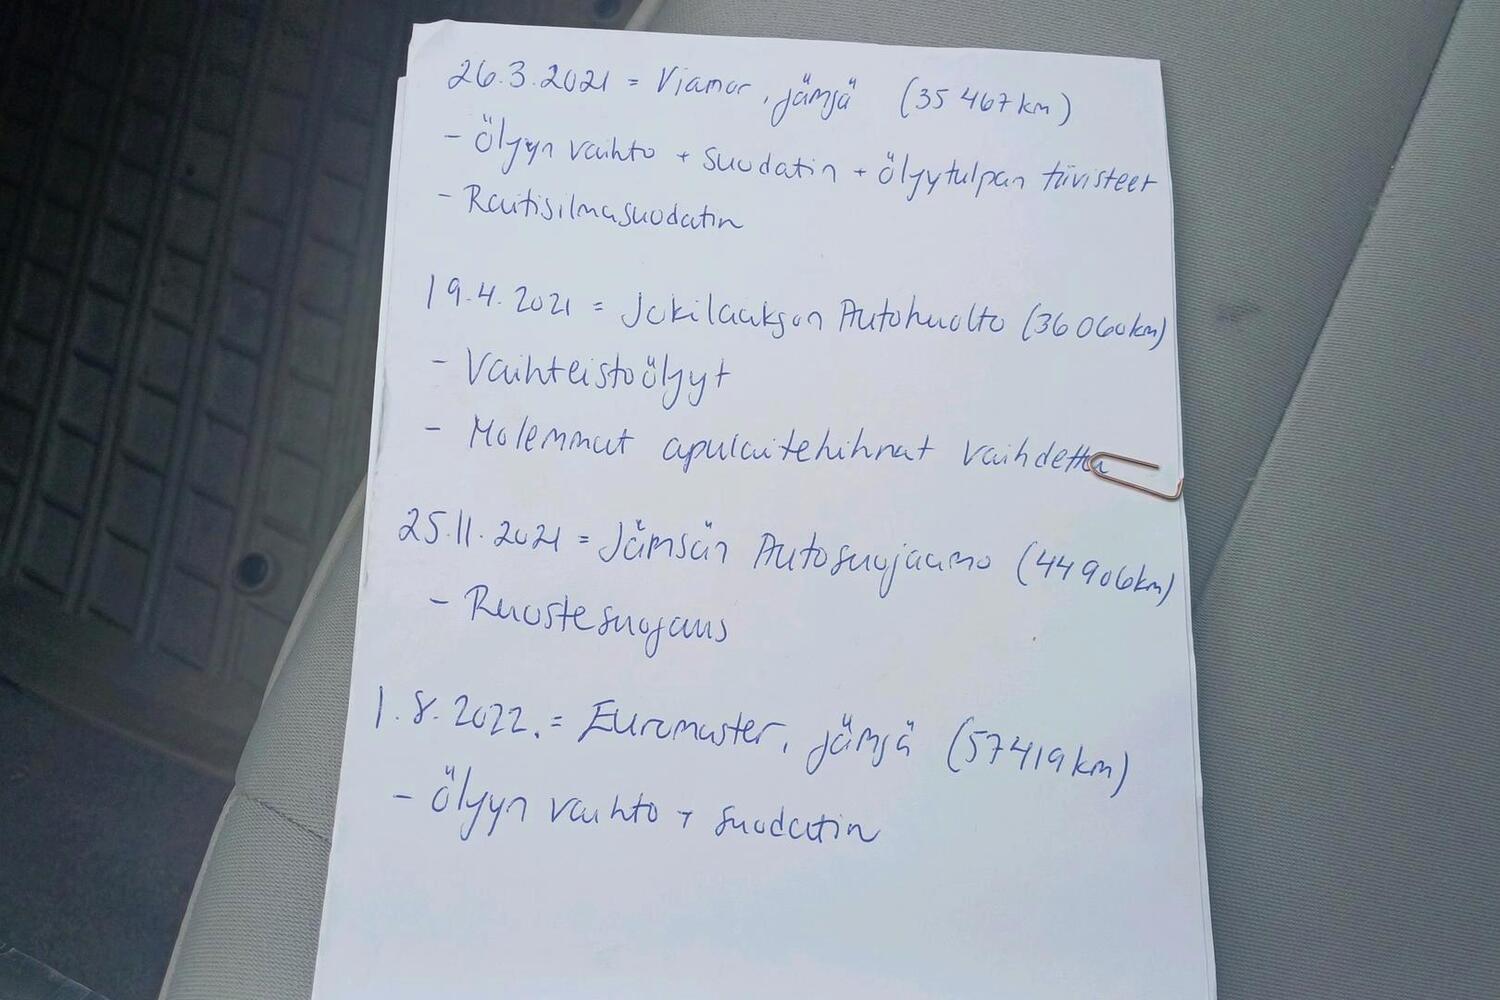 26.3.2021 = Vianor, Jämsä (35 467 km)
- Öljyn vaihto + suodatin + öljytulpan tiivisteet
- Raitisilmasuodatin
19.4.2021 = Jokilaakson Autohuolto (36 060 km)
- Vaihteistoöljyt
- Molemmat apulaitehihnat vaihdettu
25.11.2021 = Jämsän Autosuojaamo (44 906 km)
- Ruostesuojaus
1.8.2022. = Euromaster, Jämsä (57 419 km)
- Öljyn vaihto + suodatin